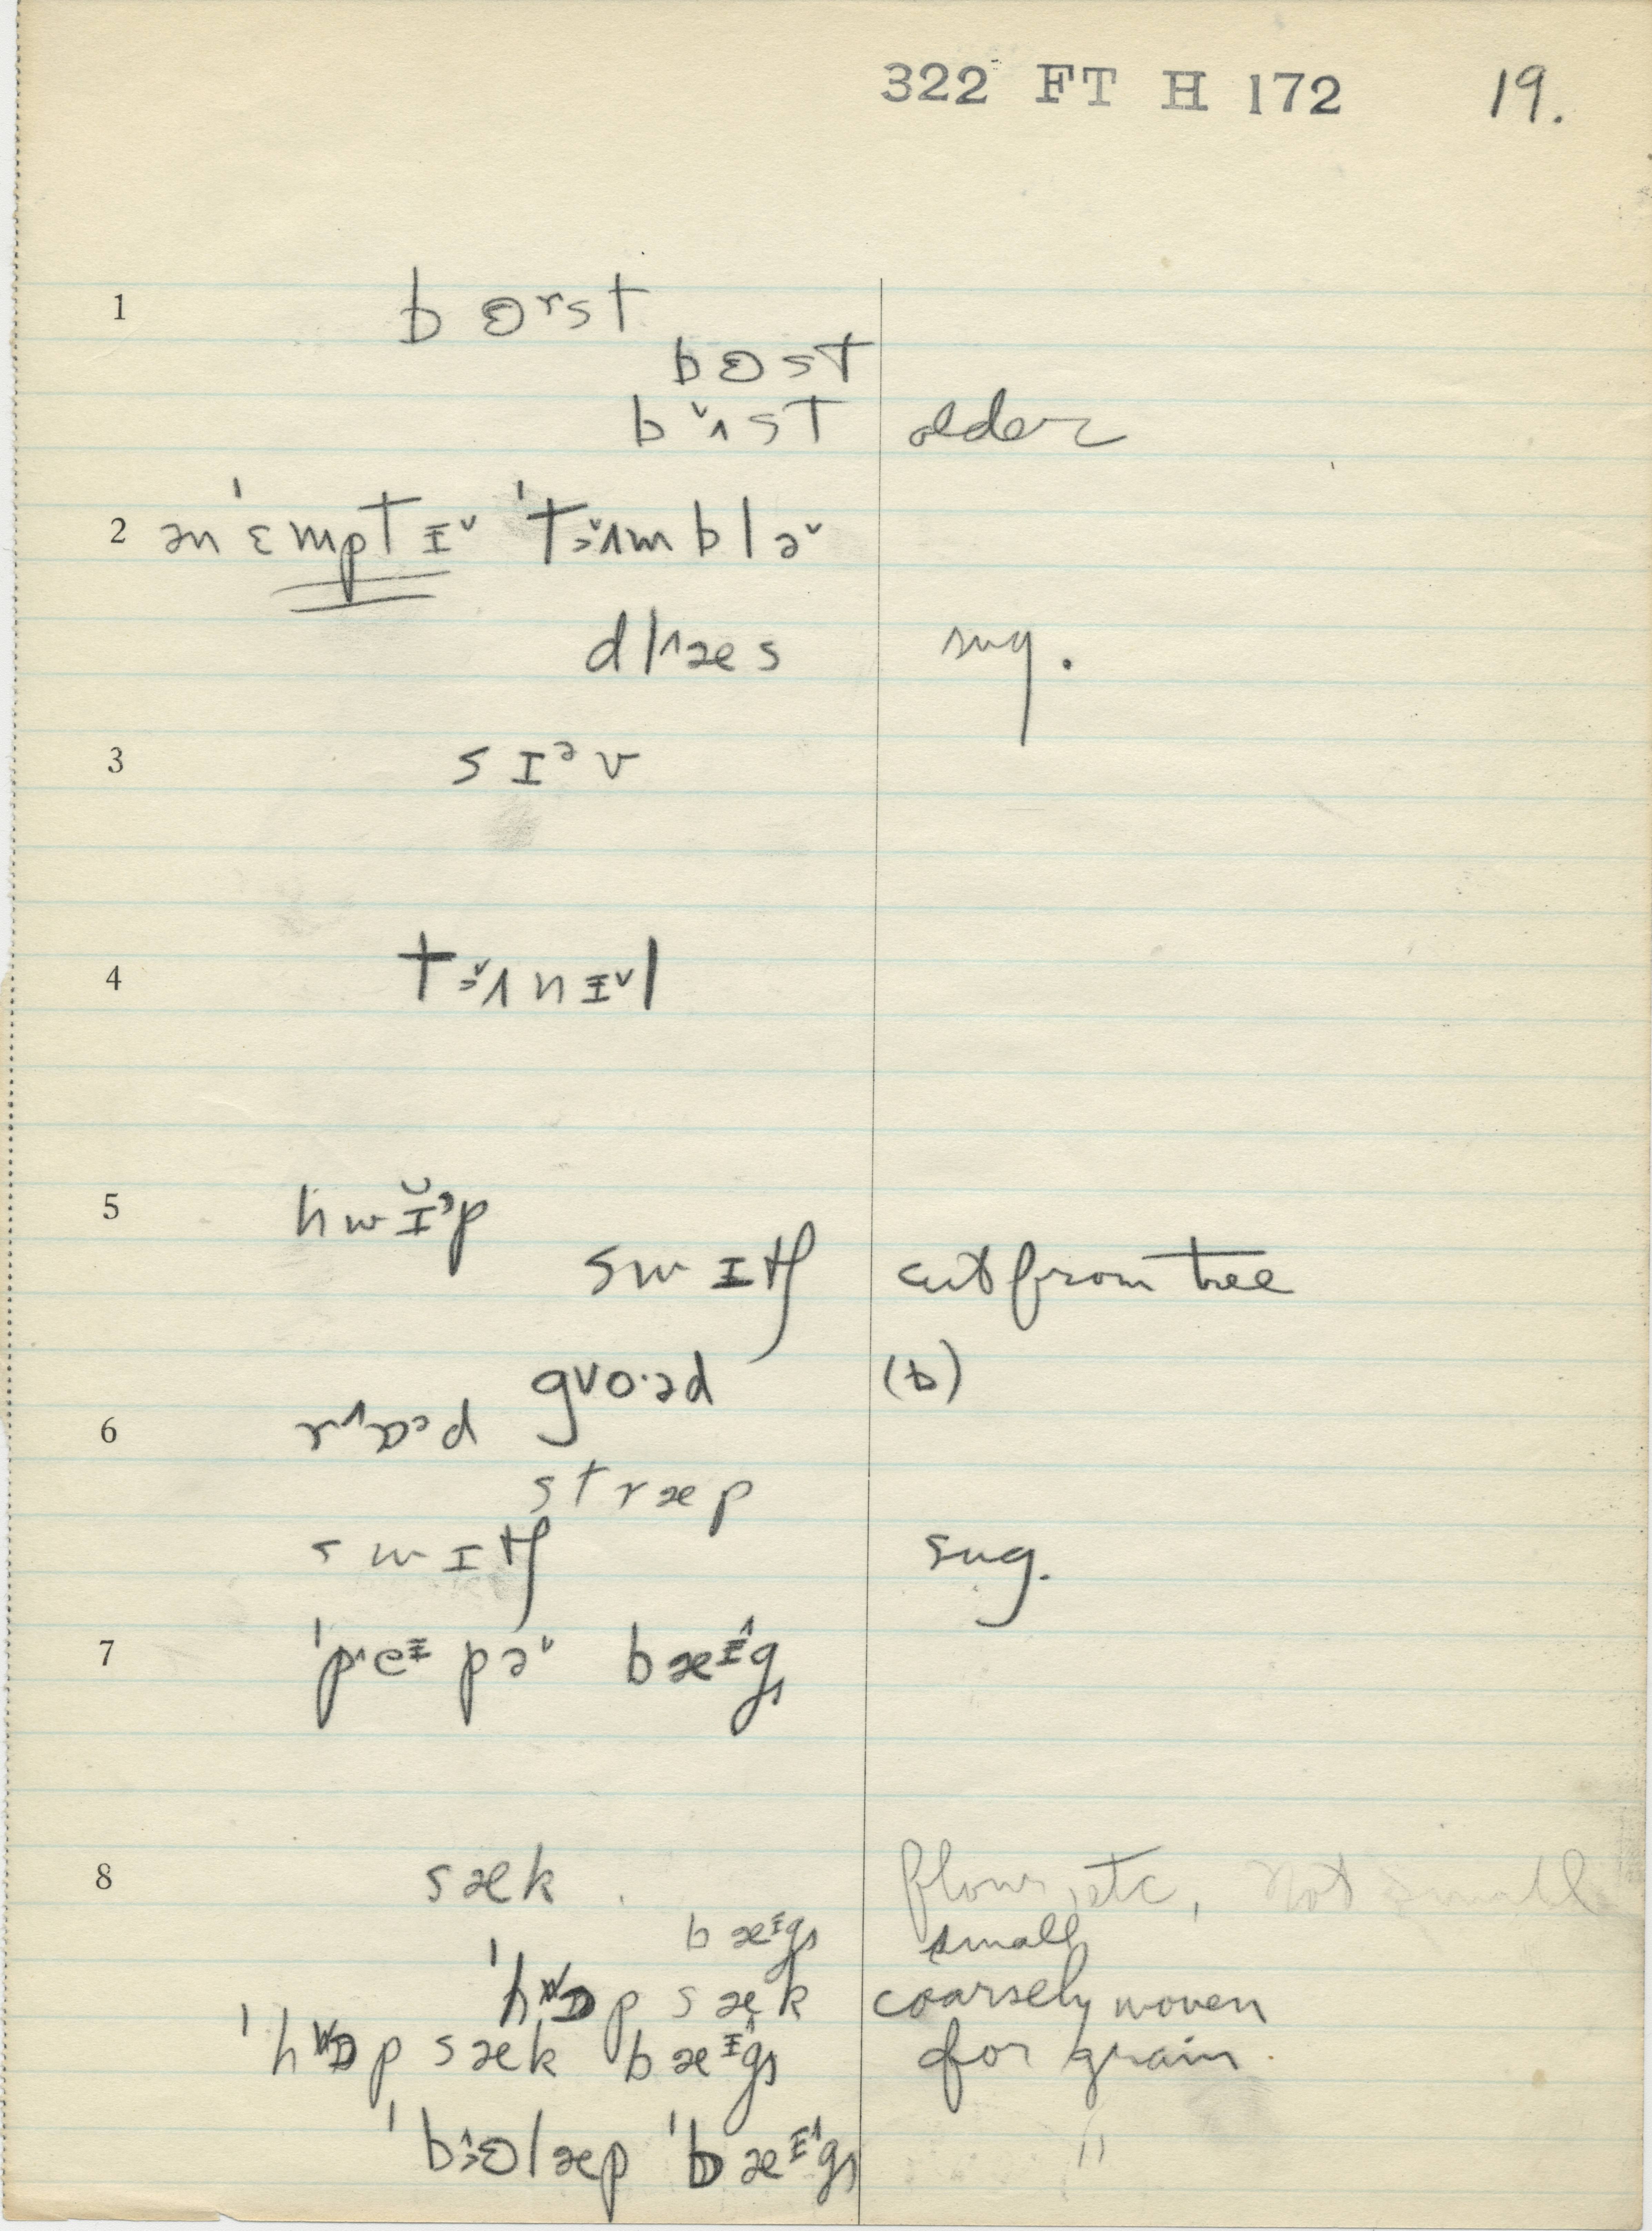 322 FT H 172 19.
1 bɵʳst
bɵst
bʌ̌st older
2 ən ˈɛmptɪˇ ˈtʌ̌mbləˇ
dl^æs sug.
3 sɪᵊv
4 tʌ̌nɪˇl
5 hwɪ̆ᵊp
swɪtʃ cut from tree
gvo·əd (b)
6 
stræp
swɪtʃ sug.
7 ˈp^eᶦpəˇ bæᶦ^g
8 sæk flour, etc, Not small
bæᶦg small
ˈhɒp sæk coarsely woven
ˈhɒp sæk bæᶦ^g for grain
ˈbɵlæp ˈbæᶦ^g "